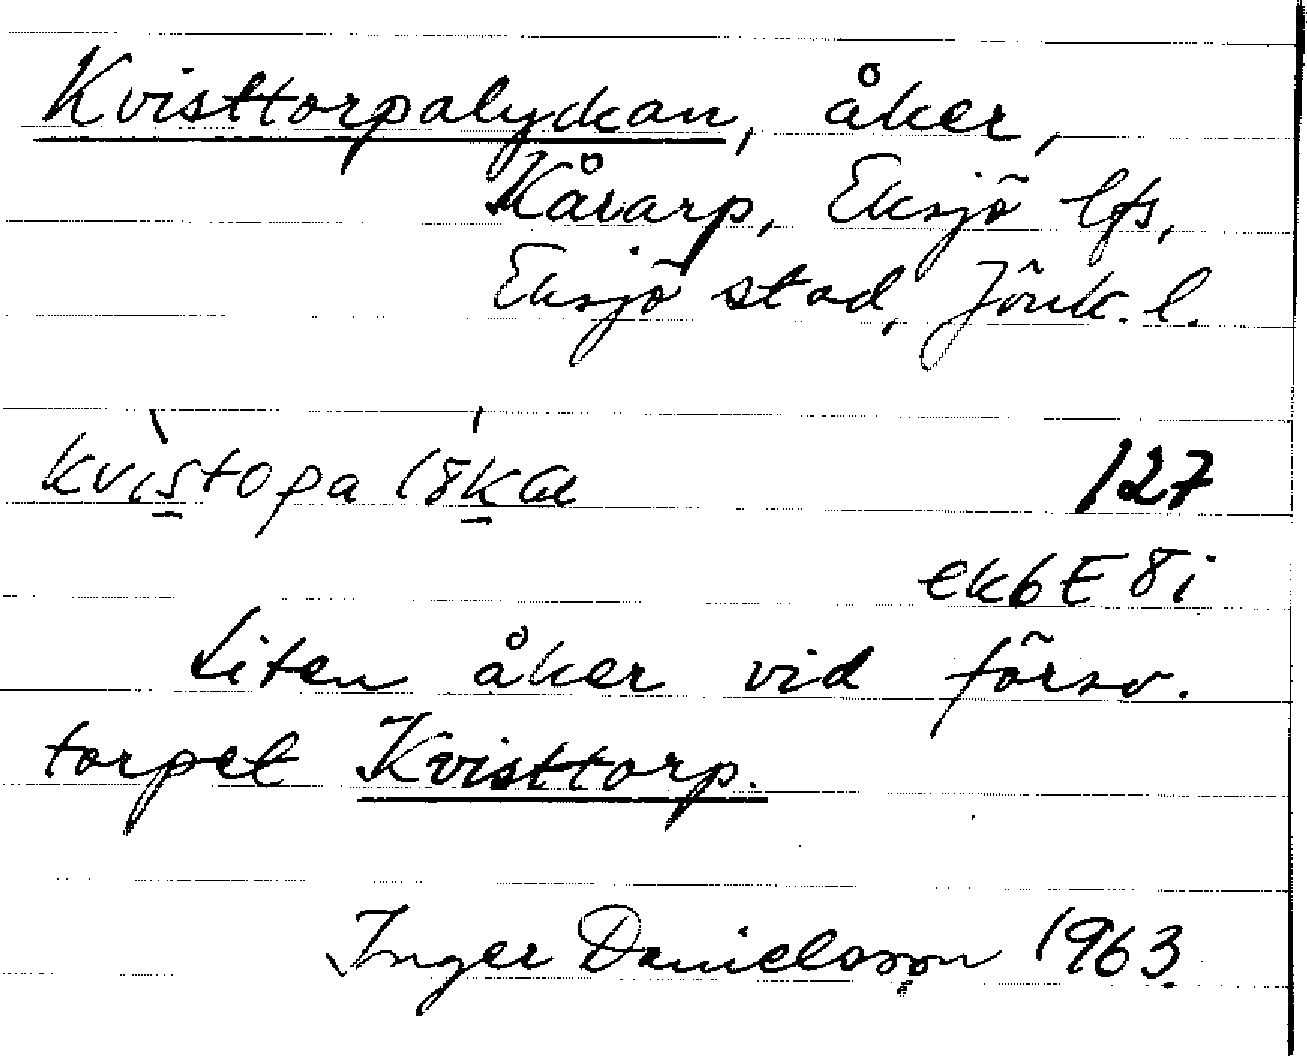 Kvisttorpalyckan, åker,
Kårarp, Eksjö lfs,
Eksjö stad, Jönk. l.
127
ek6E8i
Liten åker vid försv.
torpet Kvisttorp.
Inger Danielsson 1963